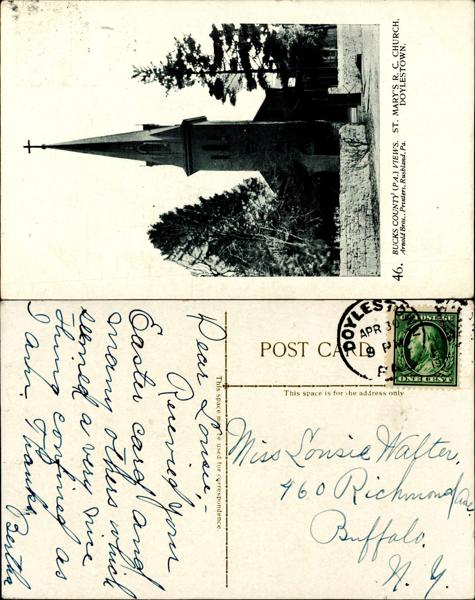 46. BUCKS COUNTY (PA.) VIEWS. ST. MARY'S R. C. CHURCH,
DOYLESTOWN.
Arnold Bros., Printers, Rushland, Pa.
Dear Lousie –
Received your
Easter card and
many others which
seemed a very nice
thing confined as
I am. Thanks,
Bertha
This space may be used for correspondence.
POST CARD
This space is for the address only
DOYLESTOWN
APR 30
9 P
PA.
U.S. POSTAGE
ONE CENT
Miss Lousie Walter,
460 Richmond Ave
Buffalo,
N. Y.